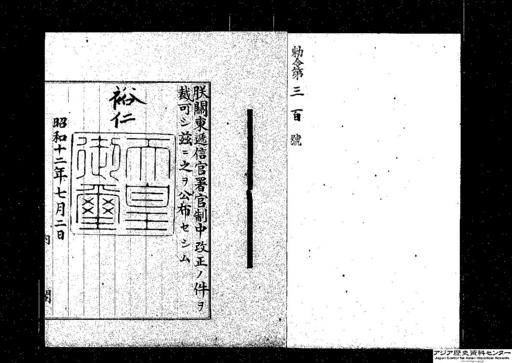 勅令第三百號
朕關東遞信官署官制中改正ノ件ヲ
裁可シ茲ニ之ヲ公布セシム
裕仁
天皇
御璽
昭和十二年七月二日
内閣
アジア歴史資料センター
Japan Center for Asian Historical Records